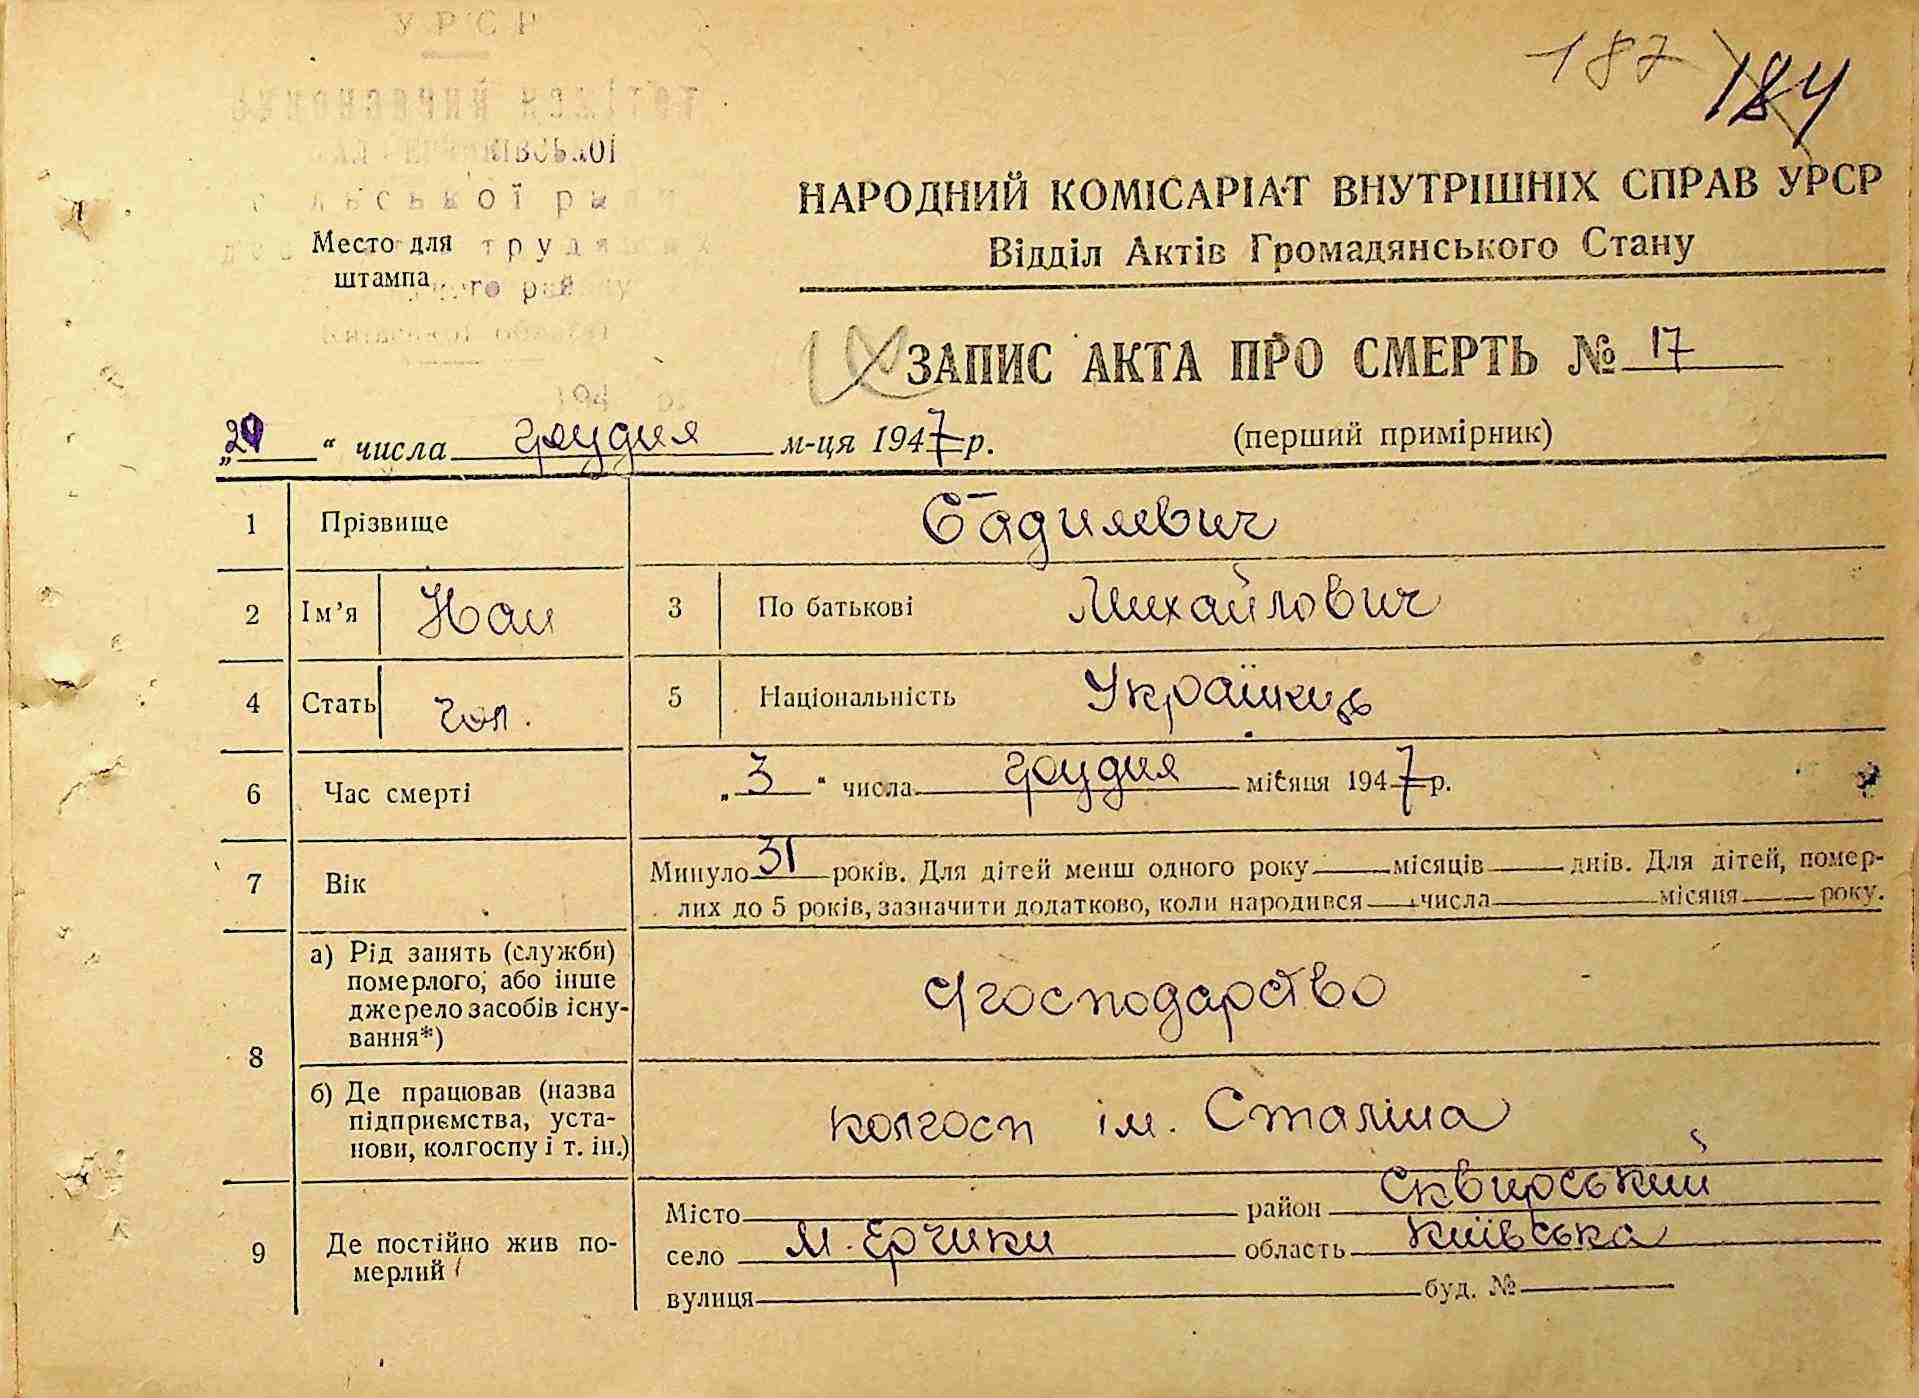 УРСР
виконавчий комітет
сільської ради
187 184
НАРОДНИЙ КОМІСАРІАТ ВНУТРІШНІХ СПРАВ УРСР
Відділ Актів Громадянського Стану
Место для
штампа
ЗАПИС АКТА ПРО СМЕРТЬ № 17
„29“ числа грудня м-ця 1947 р.
(перший примірник)
1 Прізвище Садилевич
2 Ім'я Нан 3 По батькові Михайлович
4 Стать чол. 5 Національність Українець
6 Час смерті „3“ числа грудня місяця 1947 р.
7 Вік Минуло 31 років. Для дітей менш одного року — місяців — днів. Для дітей, помер-
лих до 5 років, зазначити додатково, коли народився — числа — місяця — року.
8 а) Рід занять (служби)
померлого, або інше
джерело засобів існу-
вання*)
с/господарство
б) Де працював (назва
підприємства, уста-
нови, колгоспу і т. ін.)
колгосп ім. Сталіна
9 Де постійно жив по-
мерлий
Місто район Сквирський
село М. Єрчики область Київська
вулиця буд. №